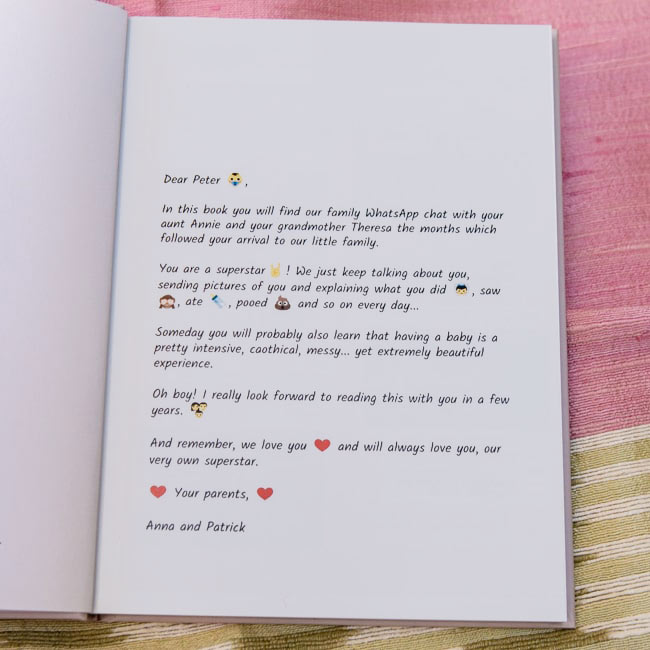 Dear Peter 👶,
In this book you will find our family WhatsApp chat with your
aunt Annie and your grandmother Theresa the months which
followed your arrival to our little family.
You are a superstar 🤘! We just keep talking about you,
sending pictures of you and explaining what you did 👦, saw
🙈, ate 🍼, pooed 💩 and so on every day...
Someday you will probably also learn that having a baby is a
pretty intensive, caothical, messy... yet extremely beautiful
experience.
Oh boy! I really look forward to reading this with you in a few
years. 👪
And remember, we love you ❤️ and will always love you, our
very own superstar.
❤️ Your parents, ❤️
Anna and Patrick